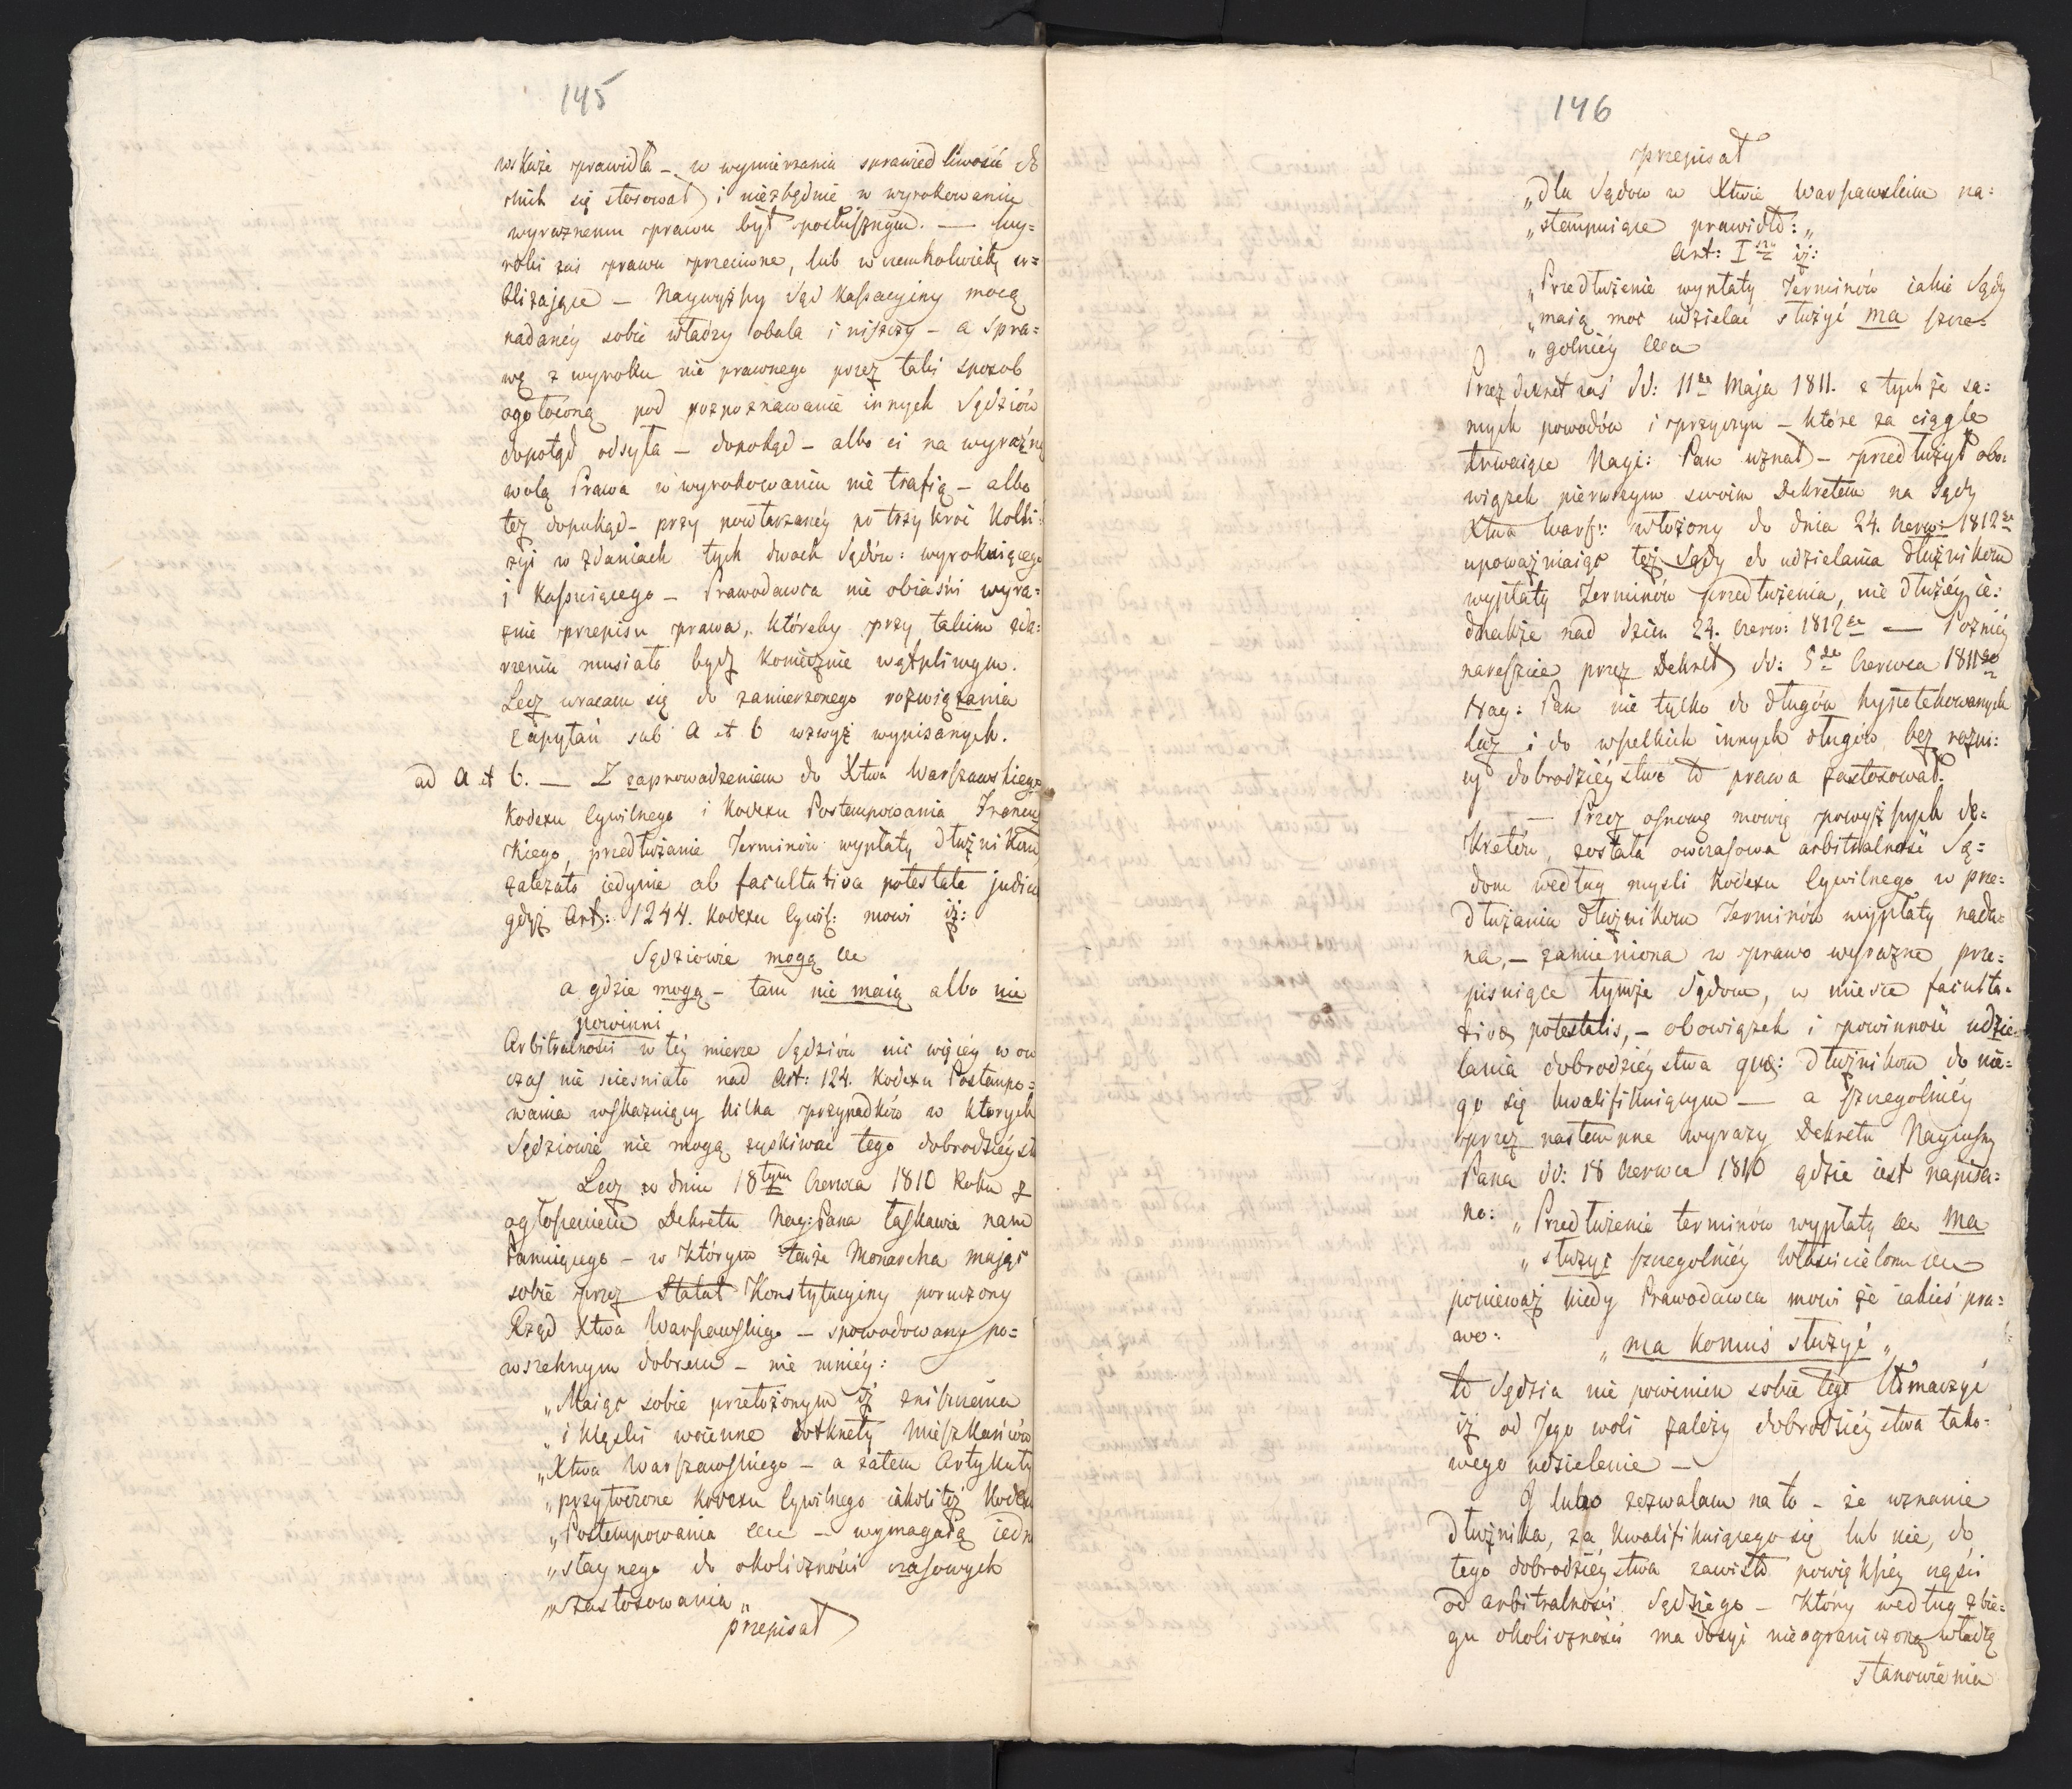 145
wskaże prawidła – w wymierzaniu sprawiedliwości do
nich się stosował i niezbędnie w wyrokowaniu
wyraznemu prawu był posłusznym. — Wy=
roki zaś prawu przeciwne, lub w czemkolwiek u=
bliżaiące – Naywyższy Sąd Kassacyiny mocą
nadanéy sobie władzy obala i niszczy – a spra=
wę z wyroku nie prawnego przez taki sposob
ogołoconą pod rozpoznawanie innych Sędziów
dopotąd odsyła – dopokąd – albo ci na wyraźną
wolą Prawa w wyrokowaniu nie trafią – albo
też dopokąd – przy powtarzanéy po trzykroć Kolli=
zyi w zdaniach tych dwoch Sądów: wyrokuiącego
i Kassuiącego – Prawodawca nie obiaśni wyra=
znie przepisu prawa, któreby przy takim zda=
rzeniu musiało bydź koniecznie wątpliwym.
Lecz wracam się do zamierzonego rozwiązania
zapytań sub a et b wzwyż wypisanych.
ad a et b. — Z zaprowadzeniem do Xtwa Warszawskiego
Kodexu Cywilnego i Kodexu Postempowania Francu
zkiego, przedłużanie Terminów wypłaty dłużnikom
zależało iedynie ab facultativa potestate judicis
gdyż Art: 1244. Kodexu Cywil: mowi iż:
Sędziowie mogą etc
a gdzie mogą – tam nie maią albo nie
powinni
Arbitralności w téy mierze Sędziów nic więcéy w on
czas nie sciesniało nad Art: 124. Kodexu Postempo=
wania wskazuiący kilka przypadków w ktorych
Sędziowie nie mogą zyskiwać tego dobrodzieyst
Lecz w dniu 18tym Czerwca 1810 Roku z
ogłoszeniem Dekretu Nay: Pana łaskawie nam
Panuiącego – w którym tenże Monarcha maiąc
sobie przez Statut Konstytucyiny poruczony
Rząd Xtwa Warszawskiego – spowodowany po=
wszechnym dobrem – nie mniéy:
„Maiąc sobie przełożonym iż zniszczenia
„i klęski woienne dotknęły Mieszkańców
„Xtwa Warszawskiego – a zatem Artykuły
„przytoczone Kodexu Cywilnego iakoliteż Kodexu
„Postempowania etc – wymagaią iedn
„staynego do okoliczności czasowych
„zastosowania„
przepisał
146
przepisał
„dla Sądow w Xtwie Warszawskim na=
„stempuiące prawidło:„
Art: I szy iż:
„Przedłużenie wypłaty Terminów iakie Sądy
„maią moc udzielać służyć ma szcze=
„golniéy etc
Przez dekret zaś dd: 11go Maja 1811. z tychże sa=
mych powodów i przyczyn – które za ciągle
trwaiące Nayi: Pan uznał – przedłużył obo=
wiązek pierwszym swoim Dekretem na Sądy
Xtwa Warsz: włożony do dnia 24. Czerw: 1812go
upoważniaiąc też Sądy do udzielania dłużnikom
wypłaty Terminów przedłużenia, nie dłużéy ie=
dnakże nad dzień 24. Czerw: 1812go — Pozniéy
nareszcie przez Dekret dd: 5go Czerwca 1811go
Nay: Pan nie tylko do długów hypotekowanych
lecz i do wszelkich innych długów bez rozni=
cy dobrodzieystwo to prawa zastosował.
— Przez osnowę mowię powyższych de=
kretów, została owczasowa arbitralność Są=
dom według mysli Kodexu Cywilnego w prze=
dłużaniu dłużnikom Terminów wypłaty nada=
na, – zamieniona w prawo wyrazne prze=
pisuiące tymże Sądom, w mieysce faculta=
tivæ potestatis, – obowiązek i powinność udzie=
lania dobrodzieystwa quæ: dłużnikom do nie=
go się kwalifikuiącym — a szczegolniéy
przez nastempne wyrazy Dekretu Nayiasn
Pana dd: 18 Czerwca 1810 gdzie iest napisa=
no: „Przedłużenie terminów wypłaty etc ma
„służyć szczegolniéy Właścicielom etc
ponieważ kiedy Prawodawca mowi że iakieś pra=
wo: „ma komuś służyć„
to Sędzia nie powinien sobie tego tłómaczyć
iż od Jego woli zależy dobrodzieystwa tako=
wego udzielenie —
I lubo zezwalam na to – że uznanie
dłużnika, za kwalifikuiącego się lub nie, do
tego dobrodzieystwa zawisło powiększéy częsci
od arbitralności Sędziego – który według zbie=
gu okoliczności ma dosyć nieograniczoną władzę
stanowienia